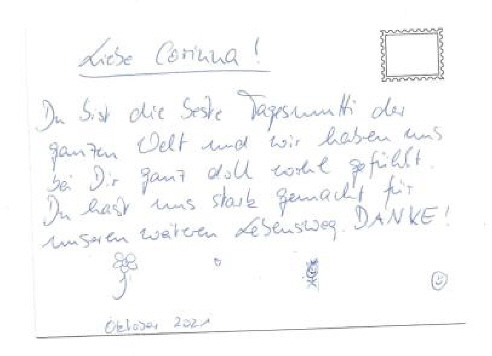 Liebe Corinna!
Du bist die beste Tagesmutti der
ganzen Welt und wir haben uns
bei Dir ganz doll wohl gefühlt.
Du hast uns stark gemacht für
unseren weiteren Lebensweg. DANKE!
Oktober 2021